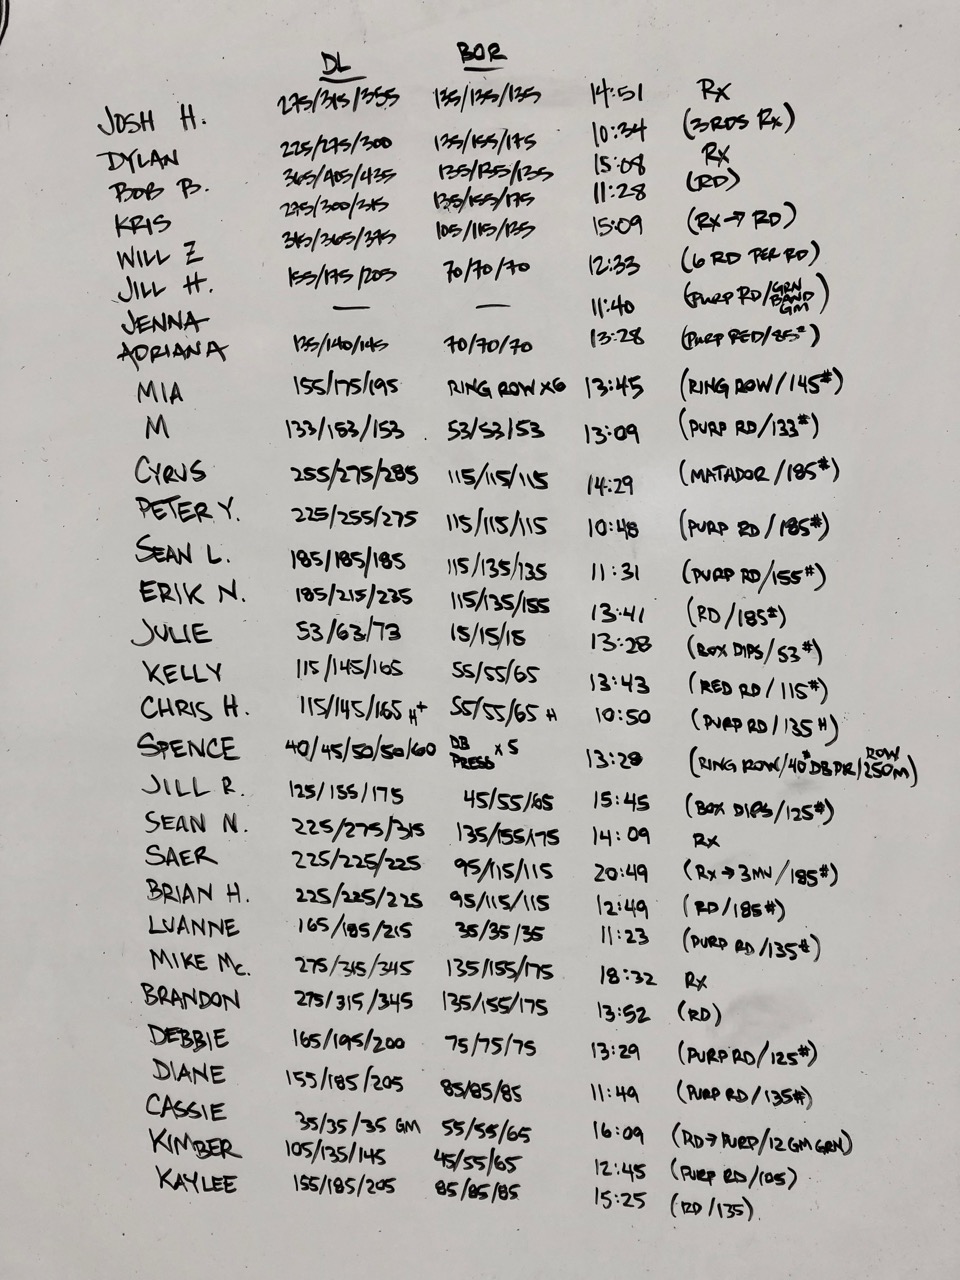 DL BOR
JOSH H. 275/315/355 135/135/135 14:51 Rx
DYLAN 225/275/300 135/155/175 10:34 (3RDS Rx)
BOB B. 365/405/435 135/135/135 15:08 Rx
KRIS 275/300/315 135/155/175 11:28 (RD)
WILL Z 315/365/375 105/115/135 15:09 (RX→RD)
JILL H. 155/175/205 70/70/70 12:33 (6 RD PER RD)
JENNA — — 11:40 (PURP RD/GRN BAND GM)
ADRIANA 135/140/145 70/70/70 13:28 (PURP RED/85#)
MIA 155/175/195 RING ROW x6 13:45 (RING ROW/145#)
M 133/153/153 53/53/53 13:09 (PURP RD/133#)
CYRUS 255/275/285 115/115/115 14:29 (MATADOR/185#)
PETER Y. 225/255/275 115/115/115 10:48 (PURP RD/185#)
SEAN L. 185/185/185 115/135/135 11:31 (PURP RD/155#)
ERIK N. 185/215/235 115/135/155 13:41 (RD/185#)
JULIE 53/63/73 15/15/15 13:28 (BOX DIPS/53#)
KELLY 115/145/165 55/55/65 13:43 (RED RD/115#)
CHRIS H. 115/145/165 H+ 55/55/65 H 10:50 (PURP RD/135 H)
SPENCE 40/45/50/50/60 DB PRESS x 5 13:28 (RING ROW/40# DB PR/ROW 250M)
JILL R. 125/155/175 45/55/65 15:45 (BOX DIPS/125#)
SEAN N. 225/275/315 135/155/175 14:09 Rx
SAER 225/225/225 95/115/115 20:49 (Rx→3MU/185#)
BRIAN H. 225/225/225 95/115/115 12:49 (RD/185#)
LUANNE 165/185/215 35/35/35 11:23 (PURP RD/135#)
MIKE Mc. 275/315/345 135/155/175 18:32 Rx
BRANDON 275/315/345 135/155/175 13:52 (RD)
DEBBIE 165/195/200 75/75/75 13:29 (PURP RD/125#)
DIANE 155/185/205 85/85/85 11:49 (PURP RD/135#)
CASSIE 35/35/35 GM 55/55/65 16:09 (RD→PURP/12 GM GRN)
KIMBER 105/135/145 45/55/65 12:45 (PURP RD/105)
KAYLEE 155/185/205 85/85/85 15:25 (RD/135)